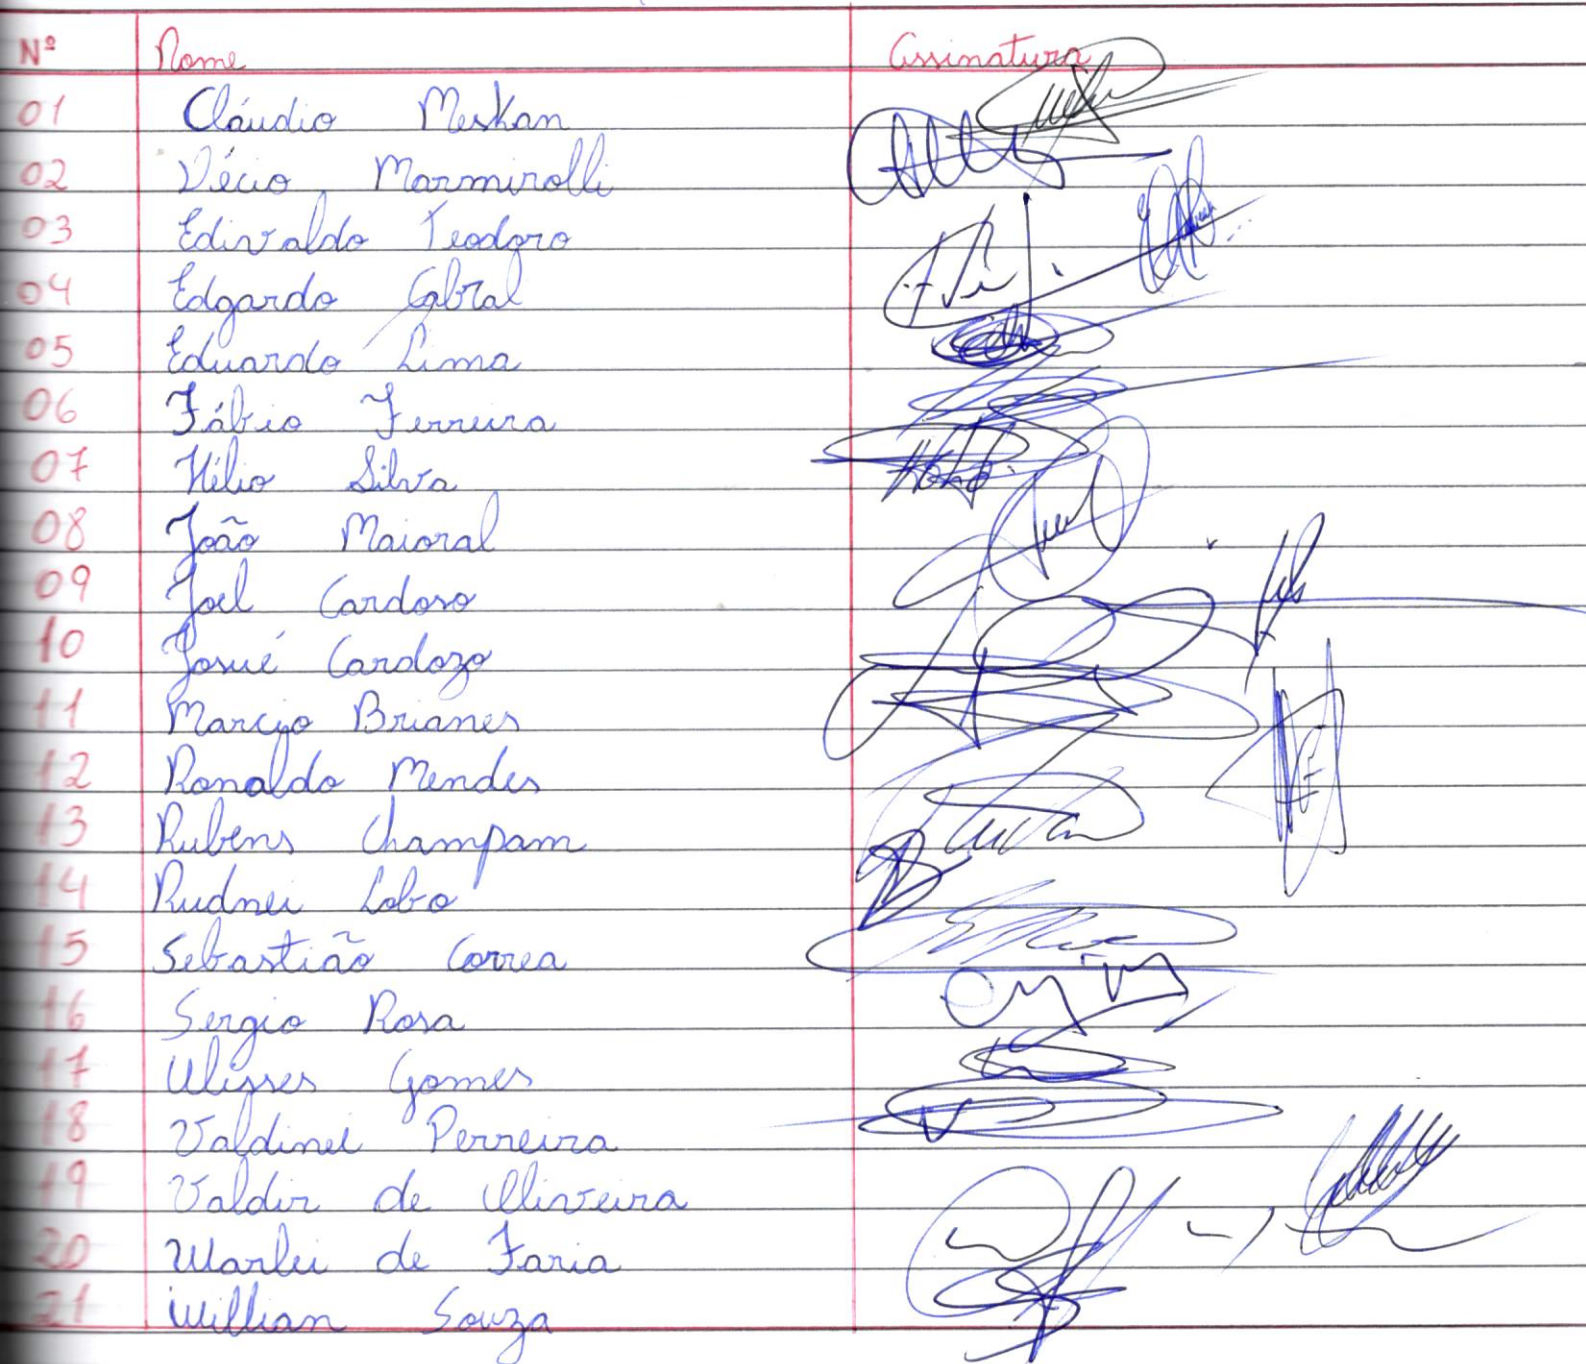 Nº Nome Assinatura
01 Cláudio Meskan
02 Décio Marmirolli
03 Edivaldo Teodoro
04 Edgardo Cabral
05 Eduardo Lima
06 Fábio Ferreira
07 Hélio Silva
08 João Maioral
09 Joel Cardoso
10 Josué Cardozo
11 Marcio Brianes
12 Ronaldo Mendes
13 Rubens Champam
14 Rudnei Lobo
15 Sebastião Correa
16 Sergio Rosa
17 Ulisses Gomes
18 Valdinei Perreira
19 Valdir de Oliveira
20 Warlei de Faria
21 Willian Souza